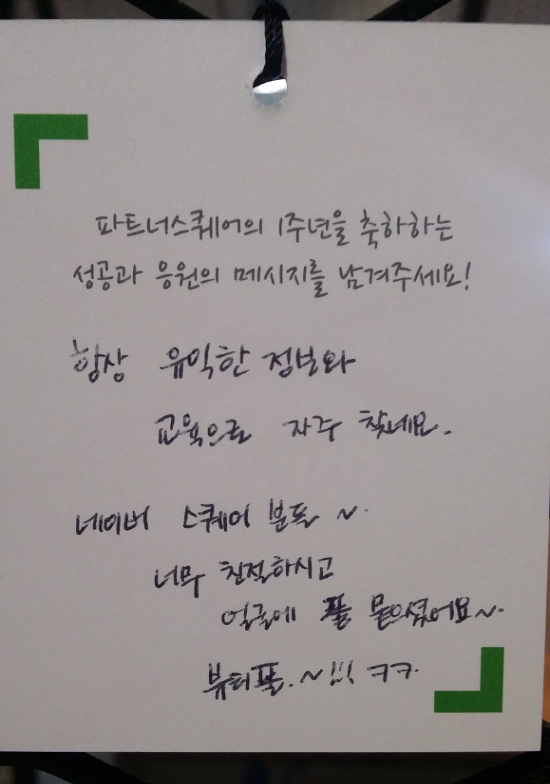 파트너스퀘어의 1주년을 축하하는
성공과 응원의 메시지를 남겨주세요!
항상 유익한 정보와
교육으로 자주 찾네요.
네이버 스퀘어 분들 ~.
너무 친절하시고
얼굴에 뽈 묻으셨어요~.
뷰티풀.~!!! ㅋㅋ.